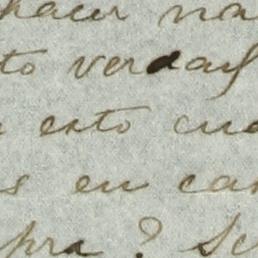 hacer na
to verdad
esto cua
s en ca
pra? Se